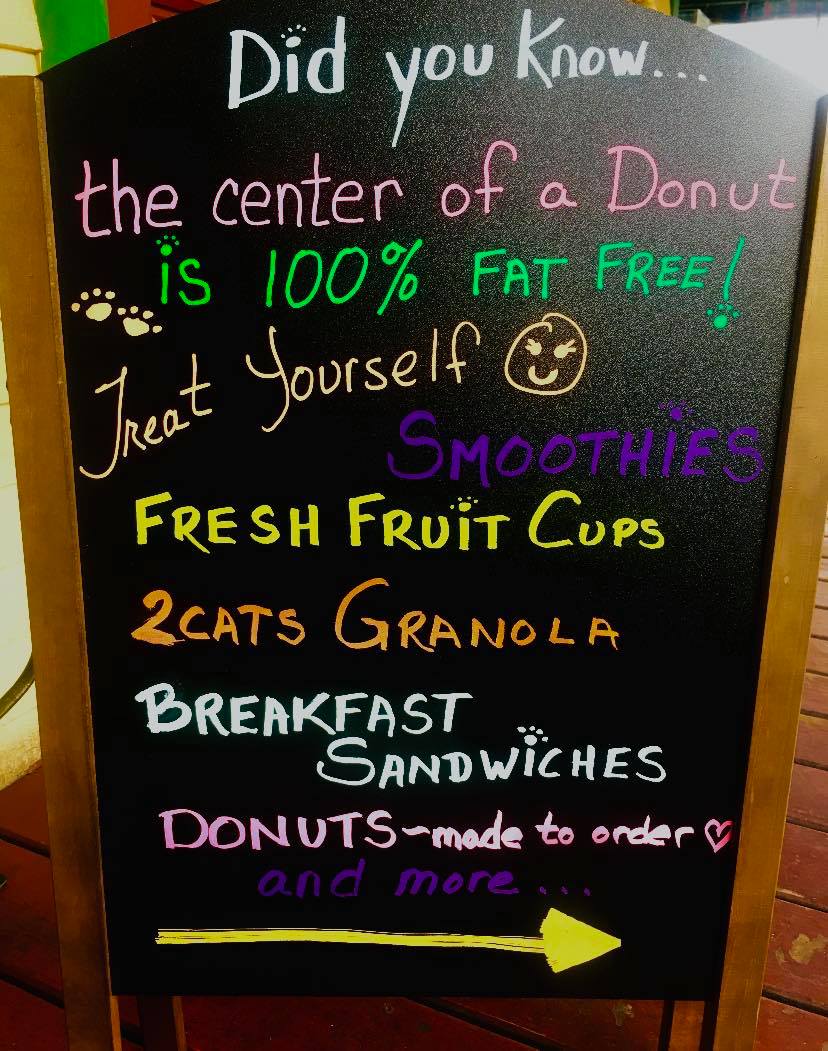 Did you know...
the center of a Donut
is 100% FAT FREE!
Treat Yourself
SMOOTHiES
FRESH FRUiT CUPS
2CATS GRANOLA
BREAKFAST
SANDWiCHES
DONUTS~made to order ♡
and more...